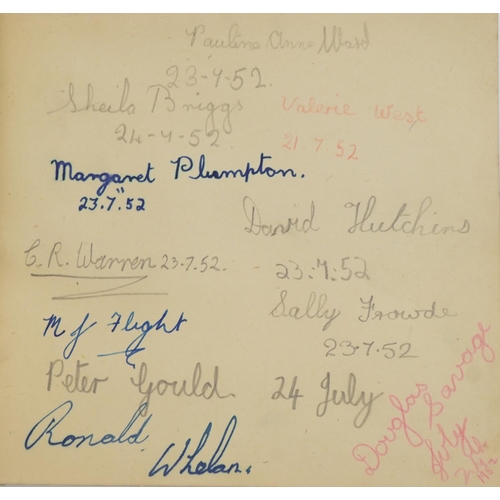 Pauline Anne Ward
23-7-52.
Sheila Briggs
24-7-52.
Valerie West
21.7.52
Margaret Plumpton.
23.7.52
David Hutchins
23.7.52
C. R. Warren 23.7.52.
Sally Frowde
23.7.52
M J Flight
Peter Gould. 24 July
Ronald Whelan.
Douglas Savage
July
1952